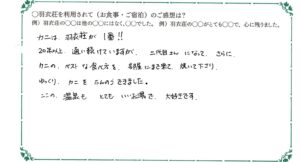 ○羽衣荘を利用されて（お食事・ご宿泊）のご感想は？
例）羽衣荘の○○は他の○○にはなく、○○でした。 例）羽衣荘の○○がとても○○で、心に残りました。
カニは、羽衣荘が 1番!!
20年以上 通い続けていますが、二代目さんになって、さらに
カニの、ベストな食べ方を、部屋にまで来て 焼いて下さり
ゆっくり、カニを たんのうできました。
ここの 温泉も とても いいお湯で、大好きです。